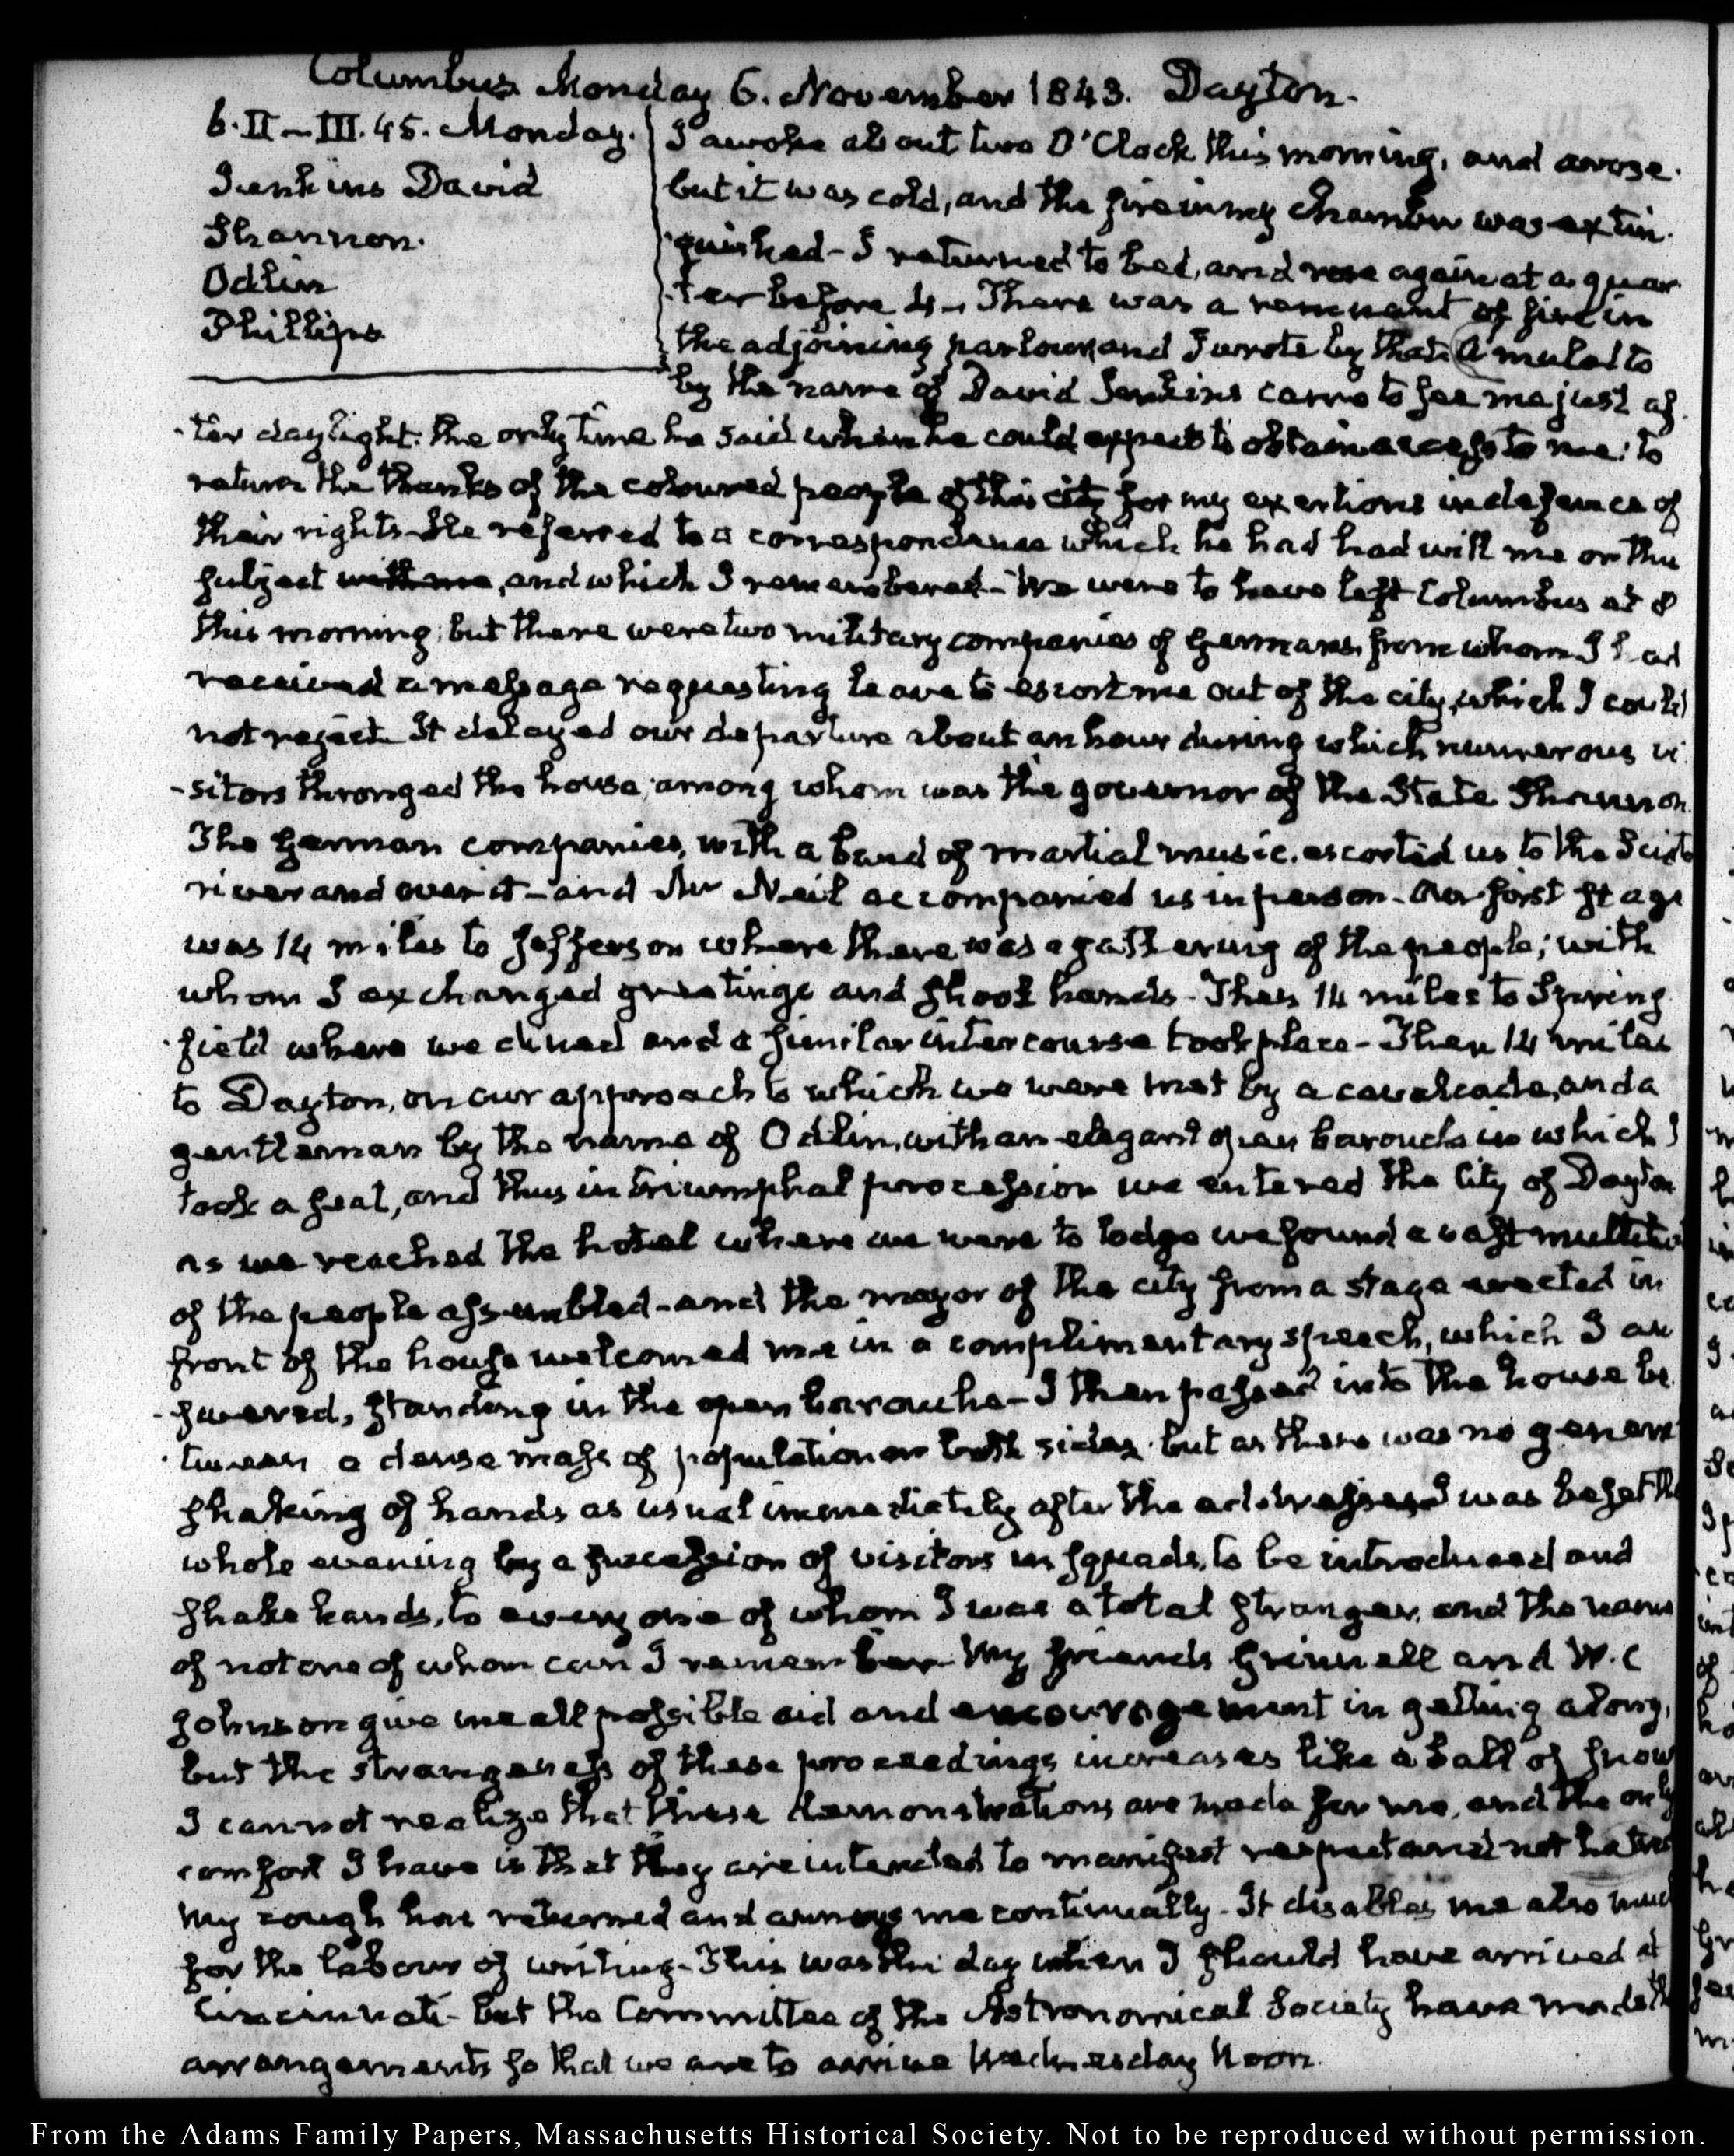 Columbus Monday 6. November 1843. Dayton.
6. II–III.45. Monday.
Jenkins David
Shannon.
Odlin
Phillips
I awoke about two O'Clock this morning, and arose.
but it was cold, and the fire in my chamber was extin
guished – I returned to bed, and rose again at a quar
ter before 4 – There was a remnant of fire in
the adjoining parlour and I wrote by that. A mulatto
by the name of David Jenkins came to see me just af
ter daylight: the only time he said when he could expect to obtain access to me: to
return the thanks of the coloured people of this city for my exertions in defence of
their rights – He referred to a correspondence which he had had with me on this
subject with me, and which I remembered – We were to have left Columbus at 8
this morning; but there were two military companies of Germans, from whom I had
received a message requesting leave to escort me out of the city, which I could
not reject. It delayed our departure about an hour during which numerous vi
-sitors thronged the house; among whom was the governor of the State Shannon
The German companies, with a band of martial music, escorted us to the Scioto
river and over it – and Mr Neil accompanied us in person – Our first stage
was 14 miles to Jefferson where there was a gathering of the people; with
whom I exchanged greetings and shook hands – Then 14 miles to Spring
field where we dined and a similar intercourse took place – Then 14 miles
to Dayton, on our approach to which we were met by a cavalcade, and a
gentleman by the name of Odlin, with an elegant open barouche in which I
took a seat, and thus in triumphal procession we entered the City of Dayton
as we reached the hotel where we were to lodge we found a vast multitu
of the people assembled – and the mayor of the city from a stage erected in
front of the house welcomed me in a complimentary speech, which I an
-swered, standing in the open barouche – I then passed into the house be
tween a dense mass of population on both sides. but as there was no general
shaking of hands as usual immediately after the addresses I was beset the
whole evening by a succession of visitors in squads, to be introduced and
shake hands, to every one of whom I was a total stranger, and the name
of not one of whom can I remember. My friends Grinnell and W. C
Johnson give me all possible aid and encouragement in getting along,
but the strangeness of these proceedings increases like a ball of snow
I cannot realize that these demonstrations are made for me, and the only
comfort I have is that they are intended to manifest respect and not hatred
My cough has returned and annoys me continually – It disables me also much
for the labour of writing – This was the day when I should have arrived at
Cincinnati – but the Committee of the Astronomical Society have made th
arrangements so that we are to arrive Wednesday Noon.
From the Adams Family Papers, Massachusetts Historical Society. Not to be reproduced without permission.